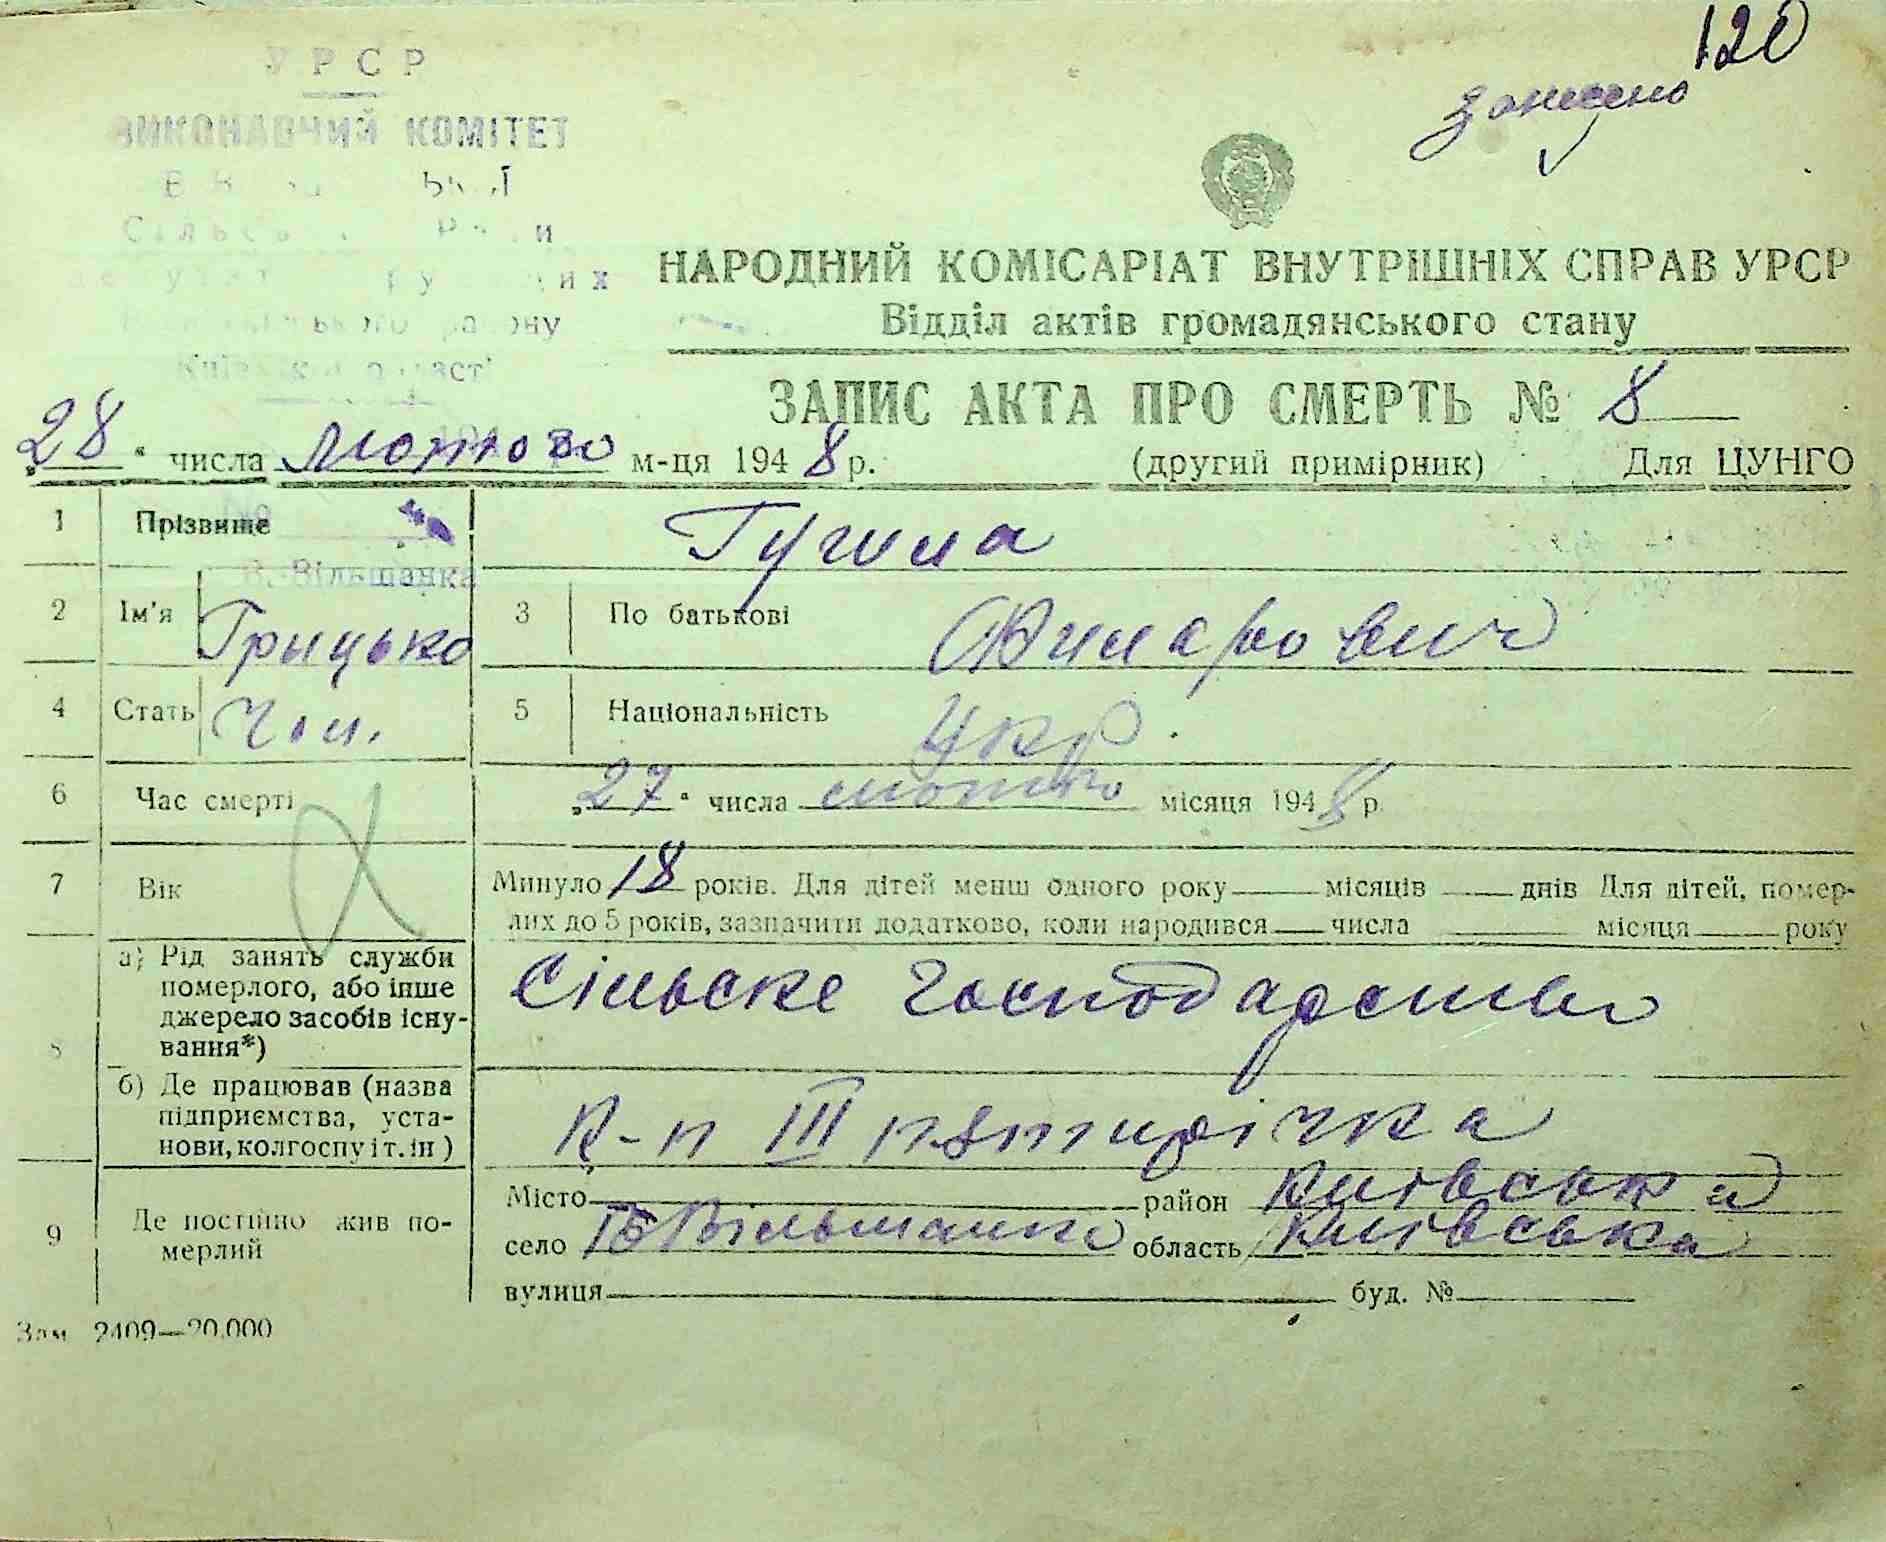 120
занесено
УРСР
ВИКОНАВЧИЙ КОМІТЕТ
НАРОДНИЙ КОМІСАРІАТ ВНУТРІШНІХ СПРАВ УРСР
Відділ актів громадянського стану
ЗАПИС АКТА ПРО СМЕРТЬ № 8
„28“ числа лютого м-ця 1948 р. (другий примірник) Для ЦУНГО
1 Прізвище
В.-Вільшанка
2 Ім'я Грицько 3 По батькові
4 Стать Чол. 5 Національність Укр.
6 Час смерті „27“ числа лютого місяця 1948 р.
7 Вік Минуло 18 років. Для дітей менш одного року місяців днів Для дітей, помер-
лих до 5 років, зазначити додатково, коли народився числа місяця року
8 а) Рід занять служби померлого, або інше джерело засобів існу-вання*) Сільське господарство
б) Де працював (назва підприємства, уста-нови, колгоспу і т. ін) К-п III пятирічка
9 Де постійно жив по-мерлий Місто район Київський
село В Вільшанка область Київська
вулиця буд. №
Зам 2409—20.000